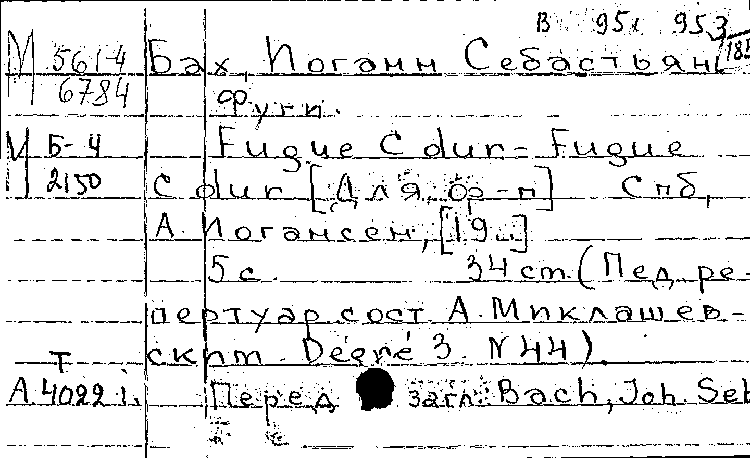 В 95к 953
/185
М 561-4 Бах, Иоганн Себастьян
6784 Фуги.
М Б-4 Fugue C dur = Fugue
2150 C dur [Для ор-п] Спб,
А. Иогансен, [19..]
5 с. 34 cm. (Пед. ре-
пертуар сост. А. Миклашев-
ский. Degré 3. N 44).
Т
А.4022 i. Перед загл.: Bach, Joh. Seb